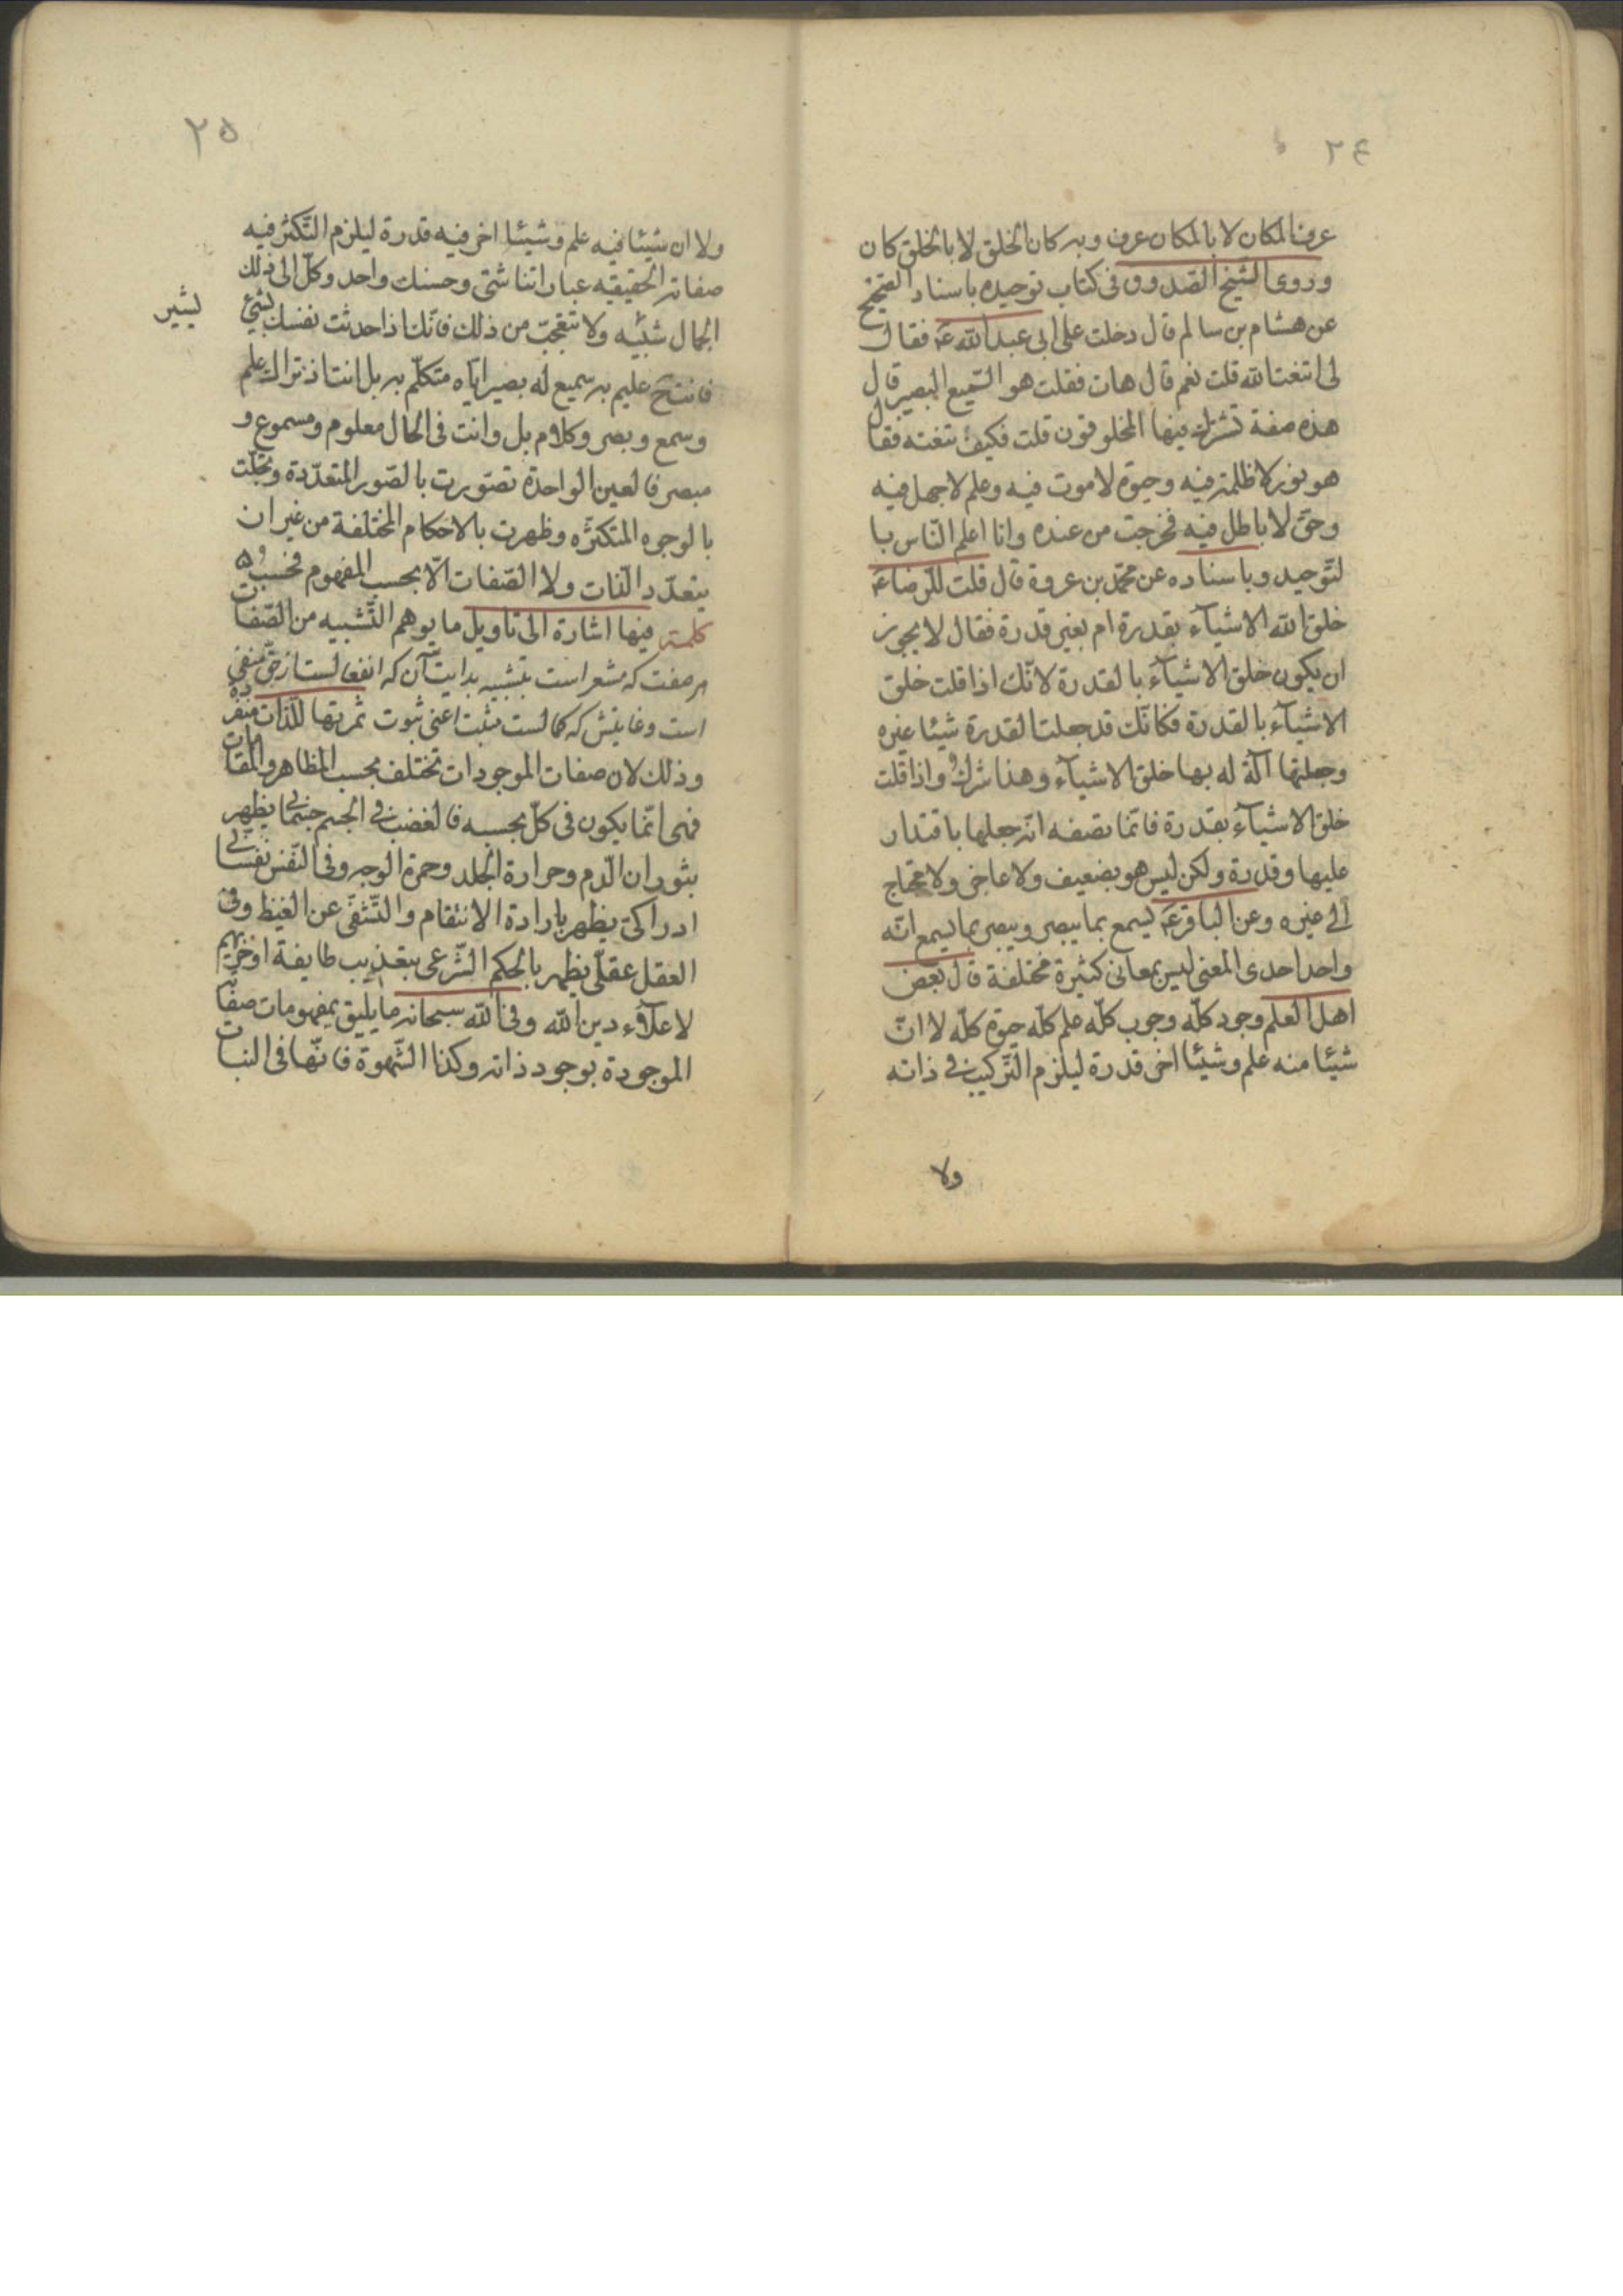 ٢٤
عرف المكان لا بالمكان عرف وبه كان الخلق لا بالخلق كان
وروى الشيخ الصدوق فى كتاب توحيده باسناد الصحيح
عن هشام بن سالم قال دخلت على ابى عبد الله ع فقال
لى اتنعت الله قلت نعم قال هات فقلت هو السميع البصير قال
هذه صفة تشترك فيها المخلوقون قلت فكيف تنعته فقال
هو نور لا ظلمة فيه وحيوة لا موت فيه وعلم لا جهل فيه
وحق لا باطل فيه فخرجت من عنده وانا اعلم الناس با
لتوحيد وباسناده عن محمد بن عروة قال قلت للرضا ع
خلق الله الاشيآء بقدرة ام بغير قدرة فقال لا يجوز
ان يكون خلق الاشيآء بالقدرة لانك اذا قلت خلق
الاشيآء بالقدرة فكانك قد جعلت القدرة شيئا غيره
وجعلتها آلة له بها خلق الاشيآء وهذا شرك واذا قلت
خلق الاشيآء بقدرة فانما تصفه انه جعلها باقتدار
عليها وقدرة ولكن ليس هو بضعيف ولا عاجز ولا محتاج
الى غيره وعن الباقر ع يسمع بما يبصر ويبصر بما يسمع انه
واحد احدى المعنى ليس بمعانى كثيرة مختلفة قال بعض
اهل العلم وجود كله وجوب كله علم كله حيوة كله لا ان
شيئا منه علم وشيئا اخر قدرة ليلزم التركيب فى ذاته
ولا
٢٥
ولا ان شيئا فيه علم وشيئا اخر فيه قدرة ليلزم التكثر فيه
صفاته الحقيقيه عباراتنا شتى وحسنك واحد وكل الى ذلك
الجمال يشير ولا تتعجب من ذلك فانك اذا حدثت نفسك بشئ
يشير
فانت ح عليم به سميع له بصير اياه متكلم به بل انت اذ ذاك علم
وسمع وبصر وكلام بل وانت فى الحال معلوم ومسموع و
مبصر فالعين الواحدة تصورت بالصور المتعددة وتجلت
بالوجوه المتكثره وظهرت بالاحكام المختلفة من غير ان
يتعدد الذات ولا الصفات الا بحسب المفهوم فحسب
كلمة فيها اشارة الى تاويل ما يوهم التشبيه من الصفات
هر صفت كه مشعر است بتشبيه بدايت آن كه انفعالست از حق منفى
است وغايتش كه كمالست مثبت اعنى ثبوت ثمرتها للذات منفردة
وذلك لان صفات الموجودات تختلف بحسب المظاهر والمقامات
فهى انما يكون فى كل بحسبه فالغضب فى الجسم جسمانى يظهر
بثوران الدم وحرارة الجلد وحمرة الوجه وفى النفس نفسانى
ادراكى يظهر بارادة الانتقام والتشفى عن الغيظ وفى
العقل عقلى يظهر بالحكم الشرعى بتعذيب طايفة او خزيهم
لاعلاء دين الله وفى الله سبحانه ما يليق بمفهومات صفاته
الموجودة بوجود ذاته وكذا الشهوة فانها فى النبات